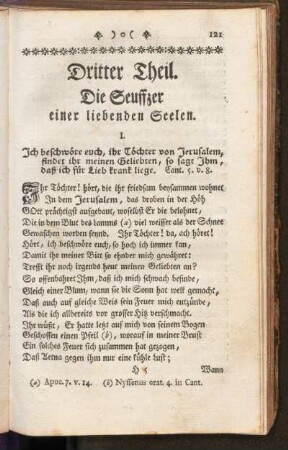 )o( 121
Dritter Theil.
Die Seuffzer
einer liebenden Seelen.
I.
Ich beschwöre euch, ihr Töchter von Jerusalem,
findet ihr meinen Geliebten, so sagt Ihm,
daß ich für Lieb krank liege. Cant. 5. v. 8.
Ihr Töchter! hört, die ihr friedsam beysammen wohnet
In dem Jerusalem, das droben in der Höh
GOtt prächtigst aufgebaut, woselbst Er die belohnet,
Die in dem Blut des Lamms (a) viel weisser als der Schnee
Gewaschen worden seynd. Ihr Töchter! da, ach höret!
Hört, ich beschwöre euch, so hoch ich immer kan,
Damit ihr meiner Bitt so ehender mich gewähret:
Trefft ihr noch irgends heut meinen Geliebten an?
So offenbahret Ihm, daß ich mich schwach befinde,
Gleich einer Blum, wann sie die Sonn hat welk gemacht,
Daß auch auf gleiche Weis sein Feuer mich entzünde,
Als die ich allbereits vor grosser Hitz verschmacht.
Ihr wüßt, Er hatte letzt auf mich von seinen Bogen
Geschossen einen Pfeil (b), worauf in meiner Brust
Ein solches Feuer sich zusammen hat gezogen,
Daß Aetna gegen ihm nur eine kühle Lust;
H Wann
(a) Apoc. 7. v. 14. (b) Nyssenus orat. 4. in Cant.